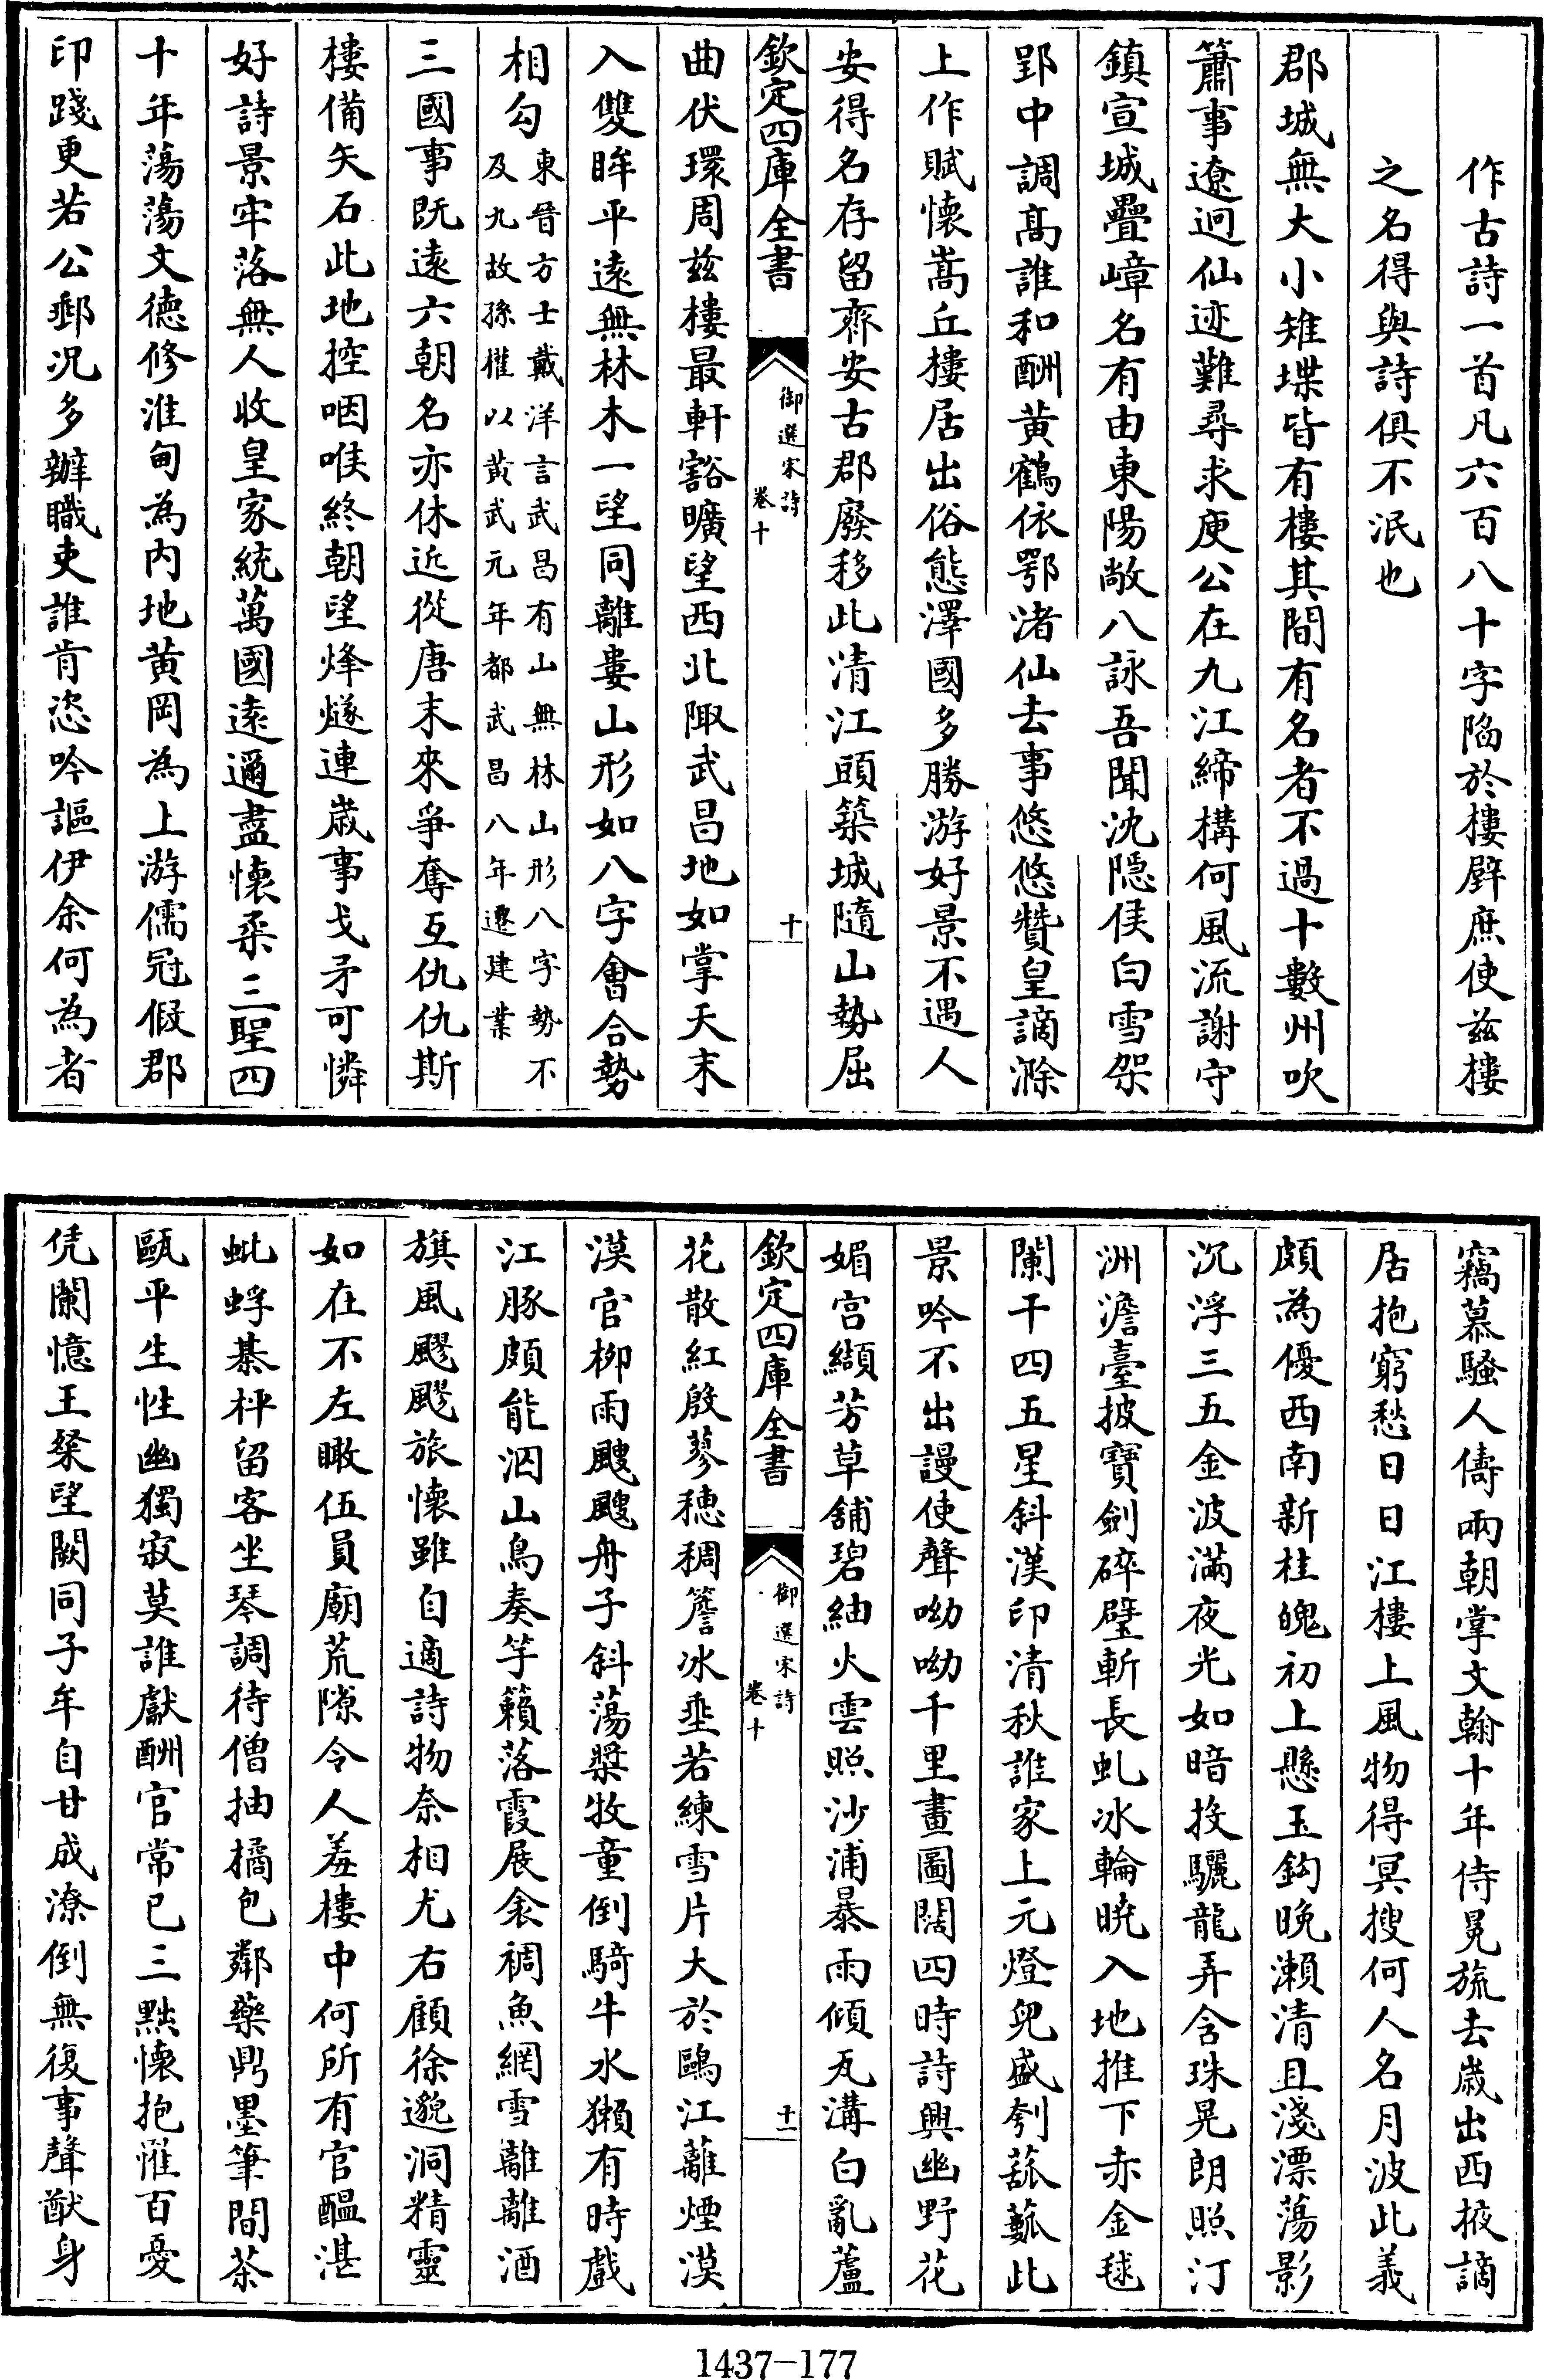 作古詩一首凡六百八十字陷於樓壁庶使兹樓
之名得與詩俱不泯也
郡城無大小雉堞皆有樓其間有名者不過十數州吹
簫事遼迥仙迹難尋求庾公在九江締構何風流謝守
鎮宣城疊嶂名有由東陽敞八詠吾聞沈隠侯白雪架
郢中調髙誰和酬黄鶴依鄂渚仙去事悠悠贊皇謫滁
上作賦懷嵩丘樓居出俗態澤國多勝游好景不遇人
安得名存留齊安古郡廢移此清江頭築城隨山勢屈
欽定四庫全書
御選宋詩
卷十
十
曲伏環周兹樓最軒豁曠望西北陬武昌地如掌天末
入雙眸平遠無林木一望同離婁山形如八字會合勢
相勾
東晉方士戴洋言武昌有山無林山形八字勢不
及九故孫權以黄武元年都武昌八年遷建業
三國事既遠六朝名亦休近從唐末來爭奪互仇仇斯
樓備矢石此地控咽喉終朝望烽燧連歲事戈矛可憐
好詩景牢落無人收皇家統萬國遠邇盡懷柔三聖四
十年蕩蕩文德修淮甸為内地黄岡為上游儒冠假郡
印踐更若公郵况多辦職吏誰肯恣吟謳伊余何為者
竊慕騷人儔兩朝掌文翰十年侍冕旒去歲出西掖謫
居抱窮愁日日江樓上風物得冥搜何人名月波此義
頗為優西南新桂魄初上懸玉鈎晩瀬清且淺漂蕩影
沉浮三五金波滿夜光如暗投驪龍弄含珠晃朗照汀
洲澹臺披寶劍碎璧斬長虬冰輪曉入地推下赤金毬
闌干四五星斜漢印清秋誰家上元燈兒盛刳蓏蓏此
景吟不出謾使聲呦呦千里畫圖闊四時詩興幽野花
媚宫纈芳草鋪碧紬火雲照沙浦暴雨傾瓦溝白亂蘆
欽定四庫全書
御選宋詩
卷十
十一
花散紅殷蓼穂稠簷冰垂若練雪片大於鷗江蘺煙漠
漠官栁雨颼颼舟子斜蕩槳牧童倒騎牛水獺有時戲
江豚頗能泅山鳥奏竽籟落霞展衾裯魚網雪離離酒
旗風飂飂旅懷雖自適詩物奈相尤右顧徐邈洞精靈
如在不左瞰伍員廟荒隙令人羞樓中何所有官醞湛
蚍蜉棊枰留客坐琴調待僧抽橘包鄰藥鼎墨筆間茶
甌平生性幽獨寂莫誰獻酬官常已三黜懷抱罹百憂
凭闌憶王粲望闕同子牟自甘成潦倒無復事聲猷身
1437-177